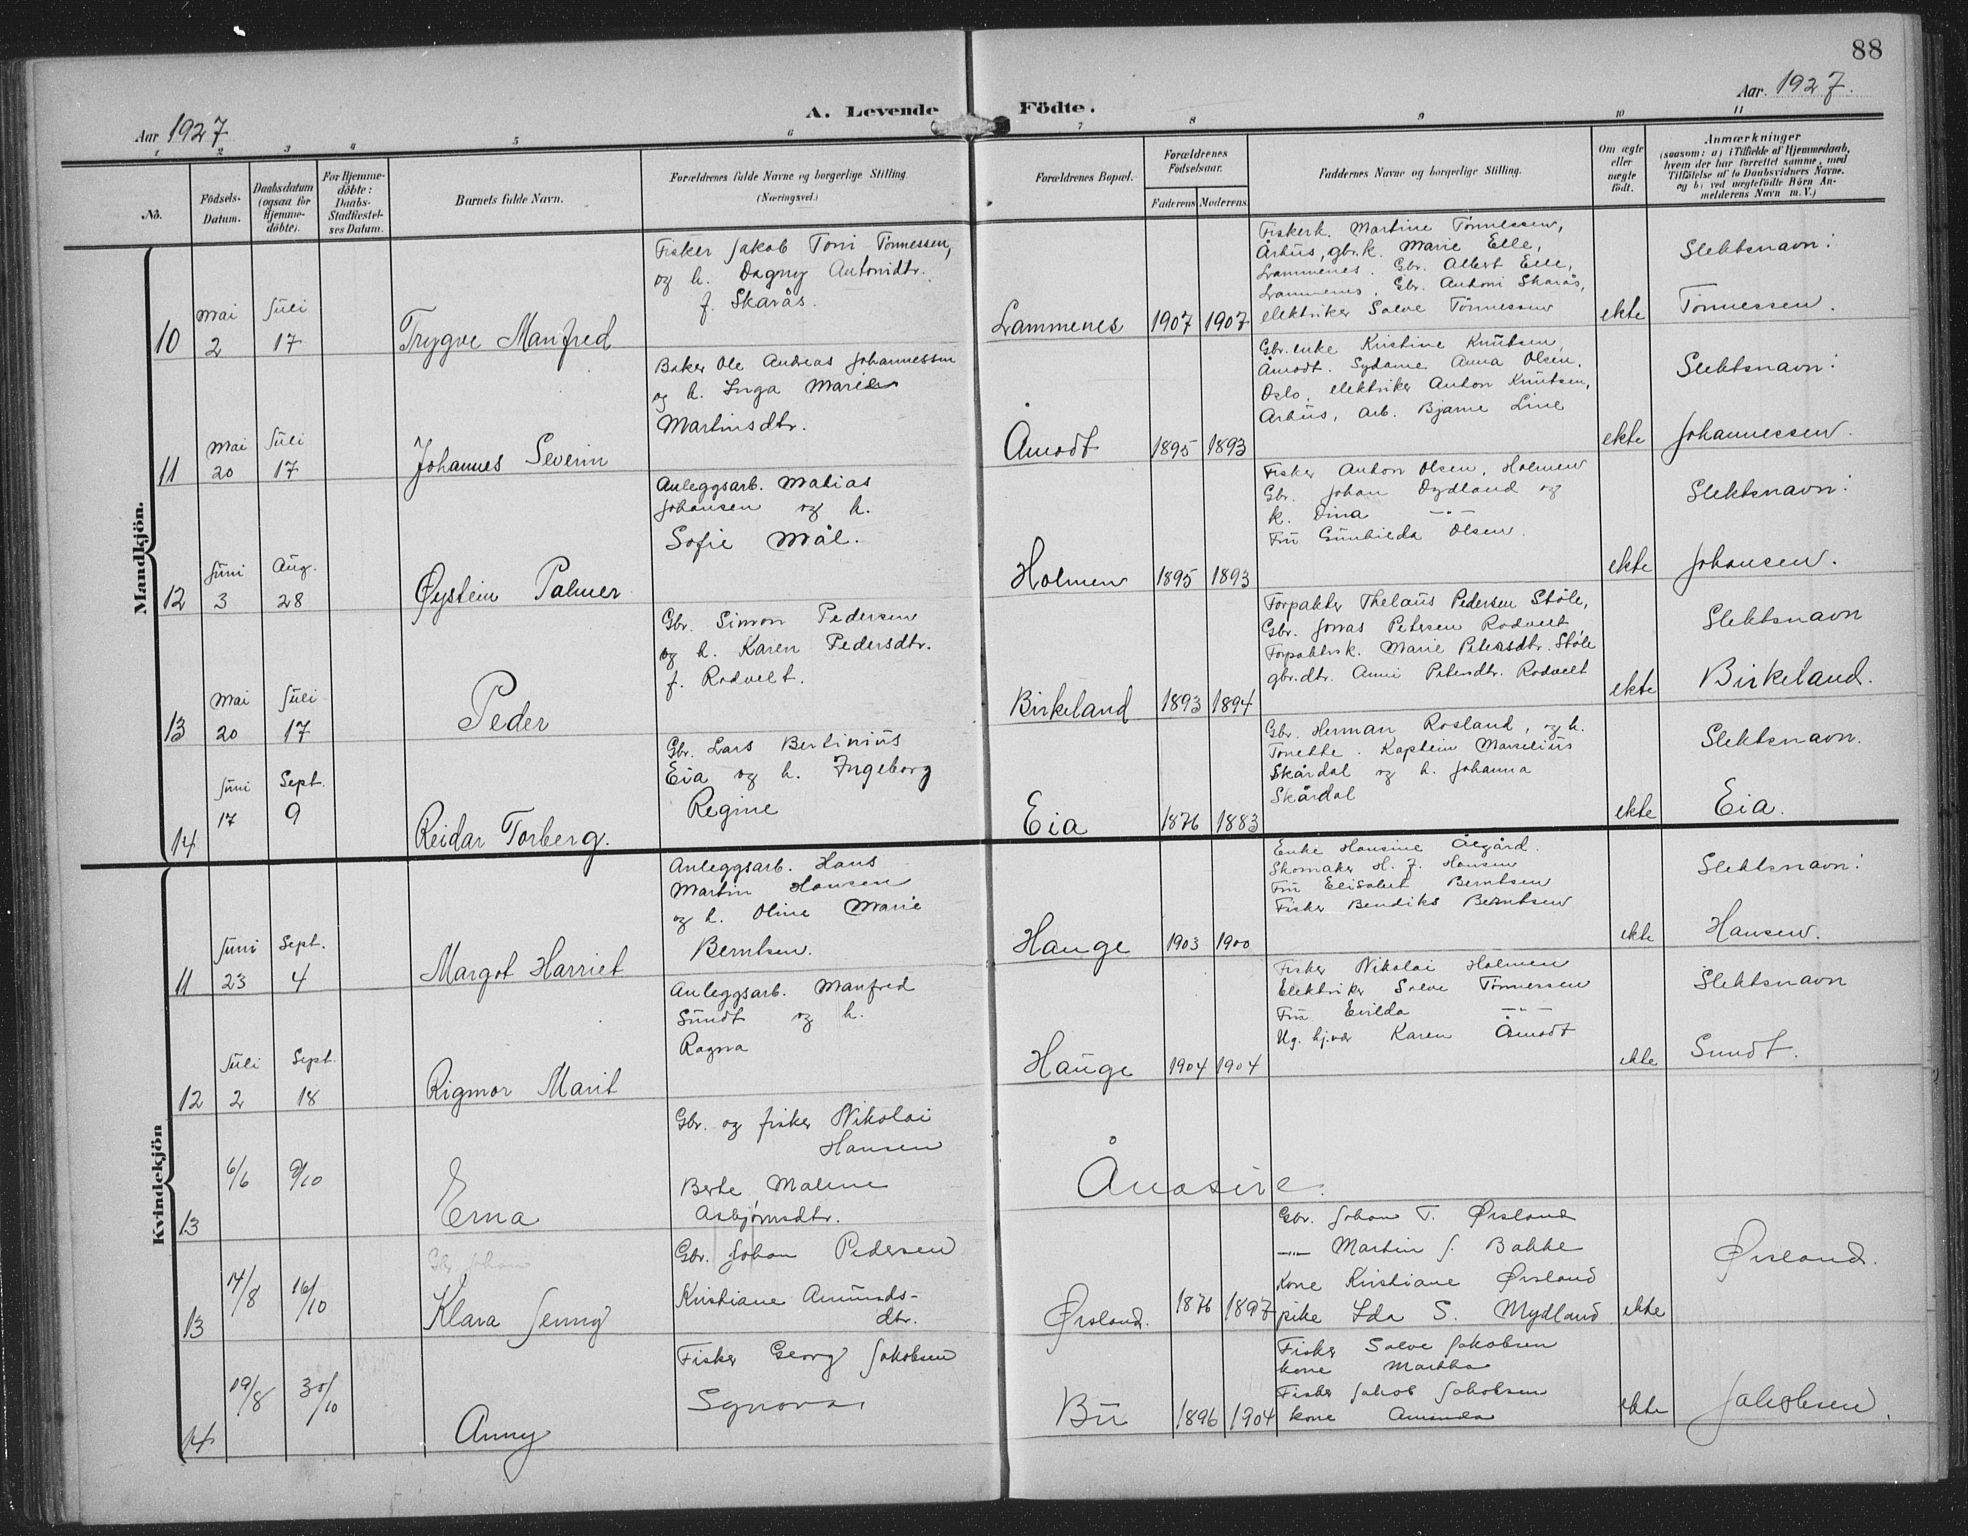 88
Aar 1927
A. Levende Födte.
Aar. 1927.
1 2 3 4 5 6 7 8 9 10 11
No.
Födsels-Datum.
Daabsdatum (ogsaa for Hjemme-döbte).
For Hjemme-döbte: Daabs-Stadfæstel-ses Datum.
Barnets fulde Navn.
Forældrenes fulde Navne og borgerlige Stilling
(Næringsvei.)
Forældrenes Bopæl.
Forældrenes Födselsaar.
Faderens Moderens
Faddernes Navne og borgerlige Stilling.
Om ægte eller uægte födt.
Anmærkninger
(saasom: a) i Tilfælde af Hjemmedaab,
hvem der har forrettet samme, med
Tilföielse af to Daabsvidners Navne.
og b) ved uægtefödte Börn An-
melderens Navn m. V.)
Mandkjön.
10 Mai 2 Juli 17 Trygve Manfred
Fisker Jakob Toni Tönnessen,
og h. Dagny Antonidtr.
f. Skarås.
Lammenes 1907 1907
Fiskerk. Martine Tönnessen,
Århus, gbr.k. Marie Elle,
Lammenes. Gbr. Albert Elle,
Lammenes, Gbr. Antoni Skarås,
elektriker Salve Tönnessen
ekte
Slektsnavn:
Tönnessen.
11 Mai 20 Juli 17 Johannes Severin
Baker Ole Andreas Johannessen
og h. Inga Marie
Martinsdtr.
Åmodt 1895 1893
Gbr.enke Kristine Knutsen,
Åmodt. Sydame Anna Olsen,
Oslo, elektriker Anton Knutsen,
Århus, arb. Bjarne Line
ekte
Slektsnavn:
Johannessen.
12 Juni 3 Aug. 28 Øystein Palmer
Anleggsarb. Matias
Johansen og h.
Sofie Mål.
Holmen 1895 1893
Fisker Anton Olsen, Holmen
Gbr. Johan Dydland og
k. Dina —"—
Fru Gunhilda Olsen.
ekte
Slektsnavn:
Johansen.
13 Mai 20 Juli 17 Peder
Gbr. Simon Pedersen
og h. Karen Pedersdtr.
f. Rodvelt.
Birkeland 1893 1894
Forpakter Thelaus Pedersen Støle,
Gbr. Jonas Petersen Rodvelt
Forpaktersk. Marie Petersdtr. Støle
gbr.dtr. Anni Petersdtr. Rodvelt
ekte
Slektsnavn
Birkeland.
14 Juni 17 Sept. 9 Reidar Torberg.
Gbr. Lars Bertinius
Eia og h. Ingeborg
Regine
Eia 1876 1883
Gbr. Herman Rosland, og h.
Tonette. Kaptein Marselius
Skårdal og h. Johanna
Skårdal
ekte
Slektsnavn.
Eia.
Kvindekjön
11 Juni 23 Sept. 4 Margot Harriet
Anleggsarb. Hans
Martin Hansen
og h. Oline Marie
Berntsen.
Hauge 1903 1900
Enke Hansine Ålgård.
Skomaker H. J. Hansen
Fru Elisabet Berntsen
Fisker Bendiks Berntsen
ekte
Slektsnavn:
Hansen.
12 Juli 2 Sept. 18 Rigmor Marit
Anleggsarb. Manfred
Sundt og h.
Ragna
Hauge 1904 1904
Fisker Nikolai Holmen
Elektriker Salve Tönnessen
Fru Evilda —"—
Ug. hj.vær Karen Åmodt
ekte
Slektsnavn
Sundt.
13 6/6 9/10 Erna
Gbr. og fisker Nikolai
Hansen
Berte Malene
Asbjørnsdtr.
Ånasire.
13 14/8 16/10 Gbr Johan
Klara Jenny
Gbr. Johan Pedersen
Kristiane Amunds-
dtr.
Ørsland. 1876 1897
Gbr. Johan T. Ørsland
—"— Martin J. Bakke
Kone Kristiane Ørsland
pike Ida S. Mydland
ekte
Ørsland.
14 19/8 30/10 Anny
Fisker Georg Jakobsen
Synova,
Bu 1896 1904
Fisker Salve Jakobsen
kone Martha
Fisker Jakob Jakobsen
kone Amanda
ekte
Jakobsen.